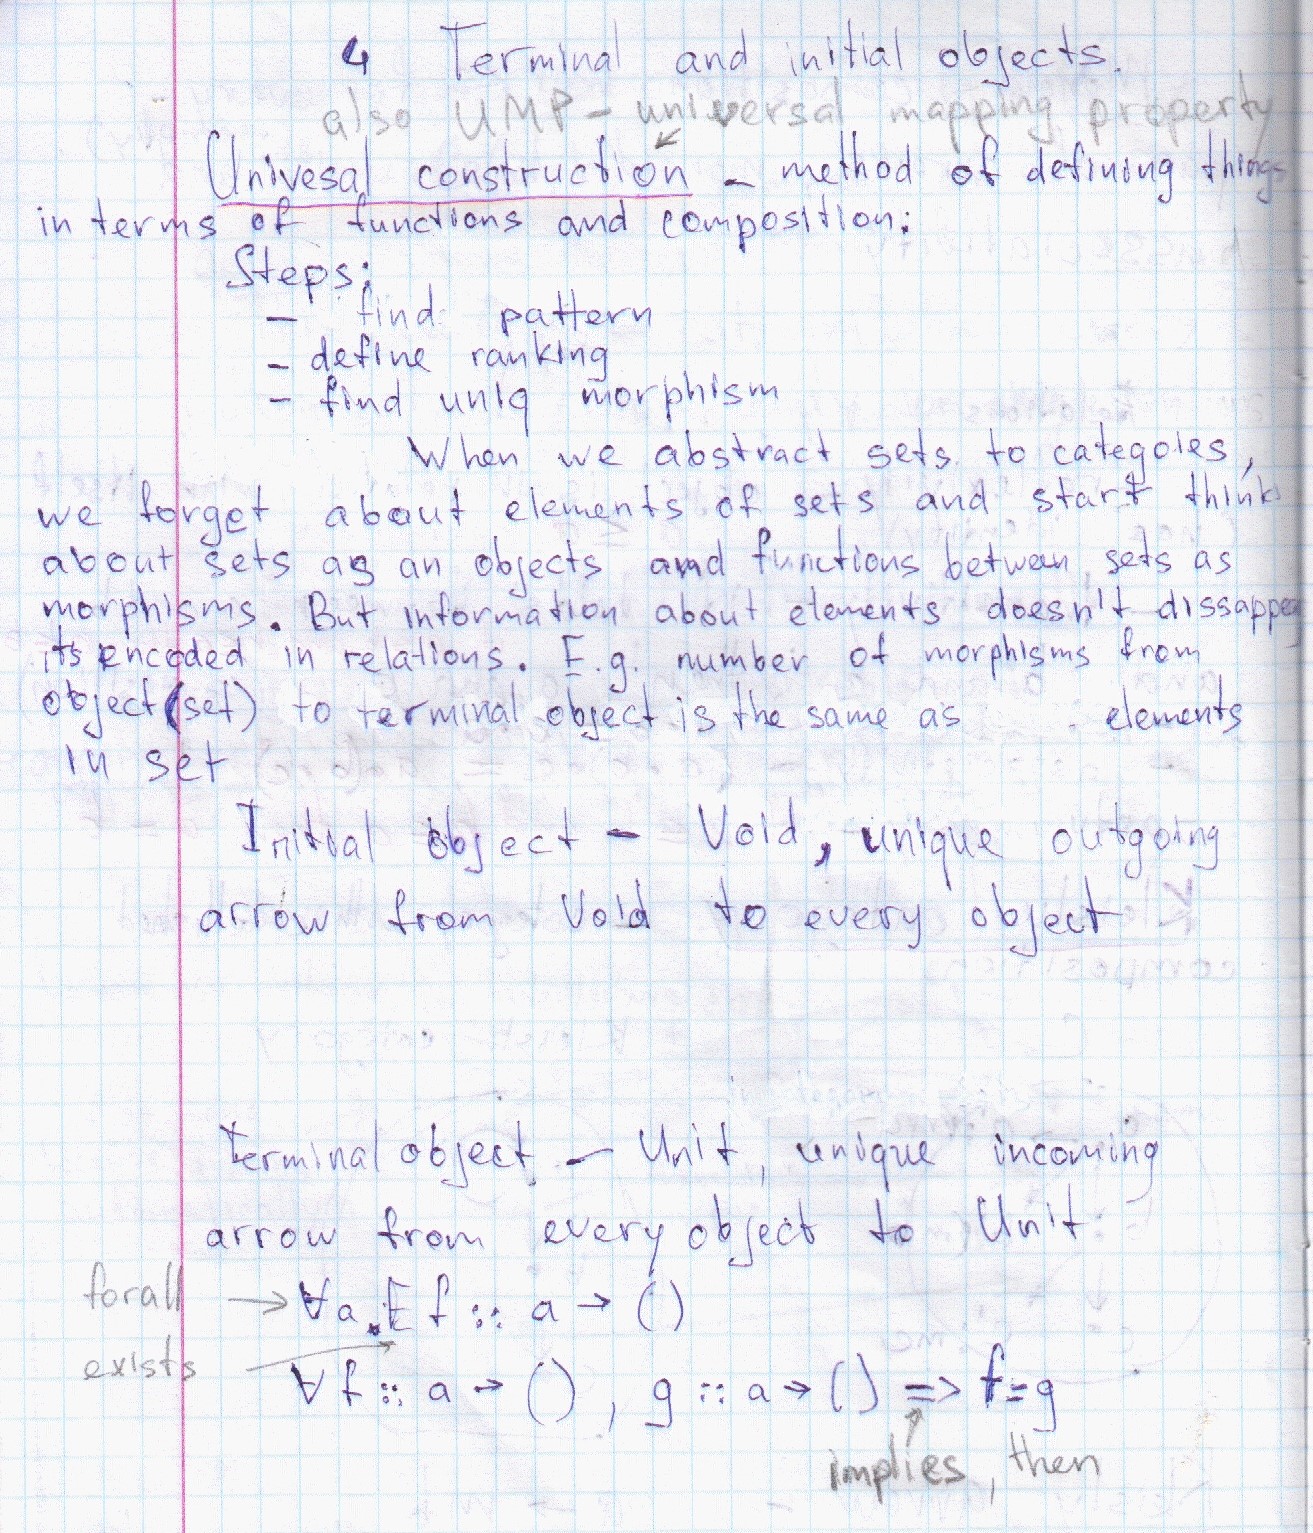 4 Terminal and initial objects.
also UMP - universal mapping property
Univesal construction - method of defining things
in terms of functions and composition:
Steps:
- find pattern
- define ranking
- find uniq morphism
When we abstract sets to categoies,
we forget about elements of sets and start think
about sets as an objects and functions between sets as
morphisms. But information about elements doesn't dissappea
its encoded in relations. E.g. number of morphisms from
object (set) to terminal object is the same as elements
in set
Initial object - Void, unique outgoing
arrow from Void to every object
Terminal object - Unit, unique incoming
arrow from every object to Unit
forall → ∀a. E f :: a → ()
exists
∀ f :: a → (), g :: a → () => f = g
implies, then